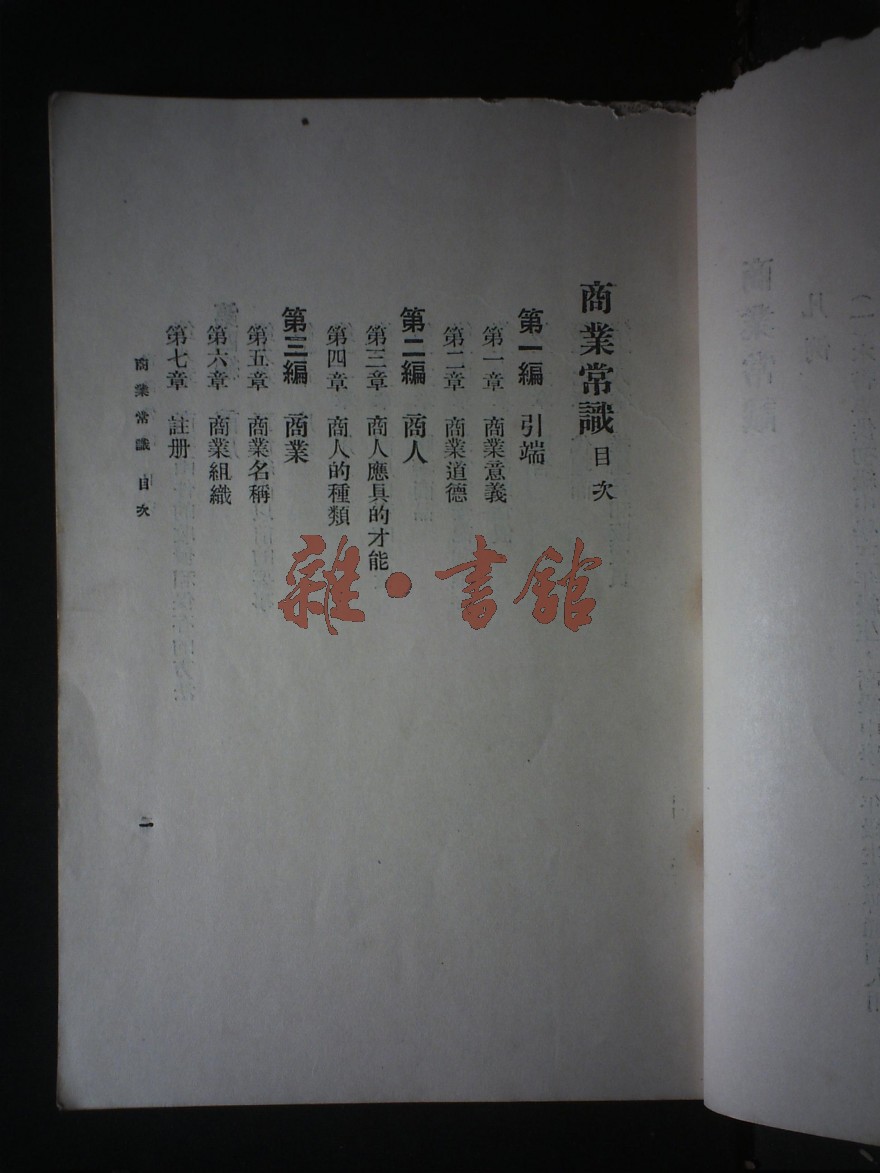 商業常識 目次
第一編 引端
第一章 商業意義
第二章 商業道德
第二編 商人
第三章 商人應具的才能
第四章 商人的種類
第三編 商業
第五章 商業名稱
第六章 商業組織
第七章 註册
商業常識 目次
二
雜·書館